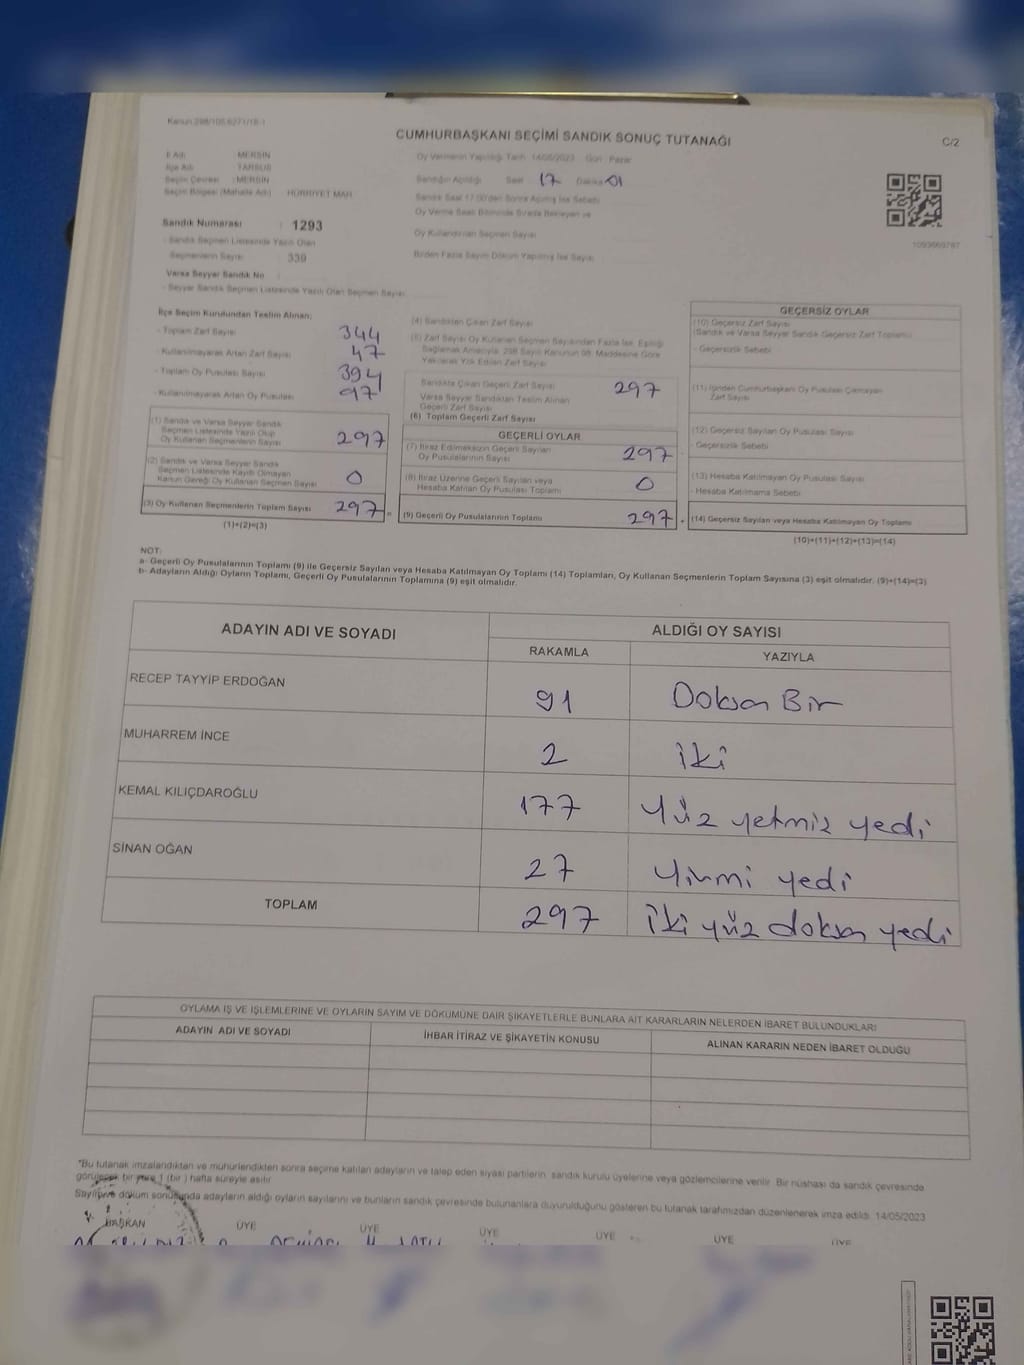 Kanun:298/105,6271/18-1
CUMHURBAŞKANI SEÇİMİ SANDIK SONUÇ TUTANAĞI
C/2
İl Adı : MERSİN
İlçe Adı : TARSUS
Seçim Çevresi : MERSİN
Seçim Bölgesi (Mahalle Adı) : HÜRRİYET MAH.
Oy Vermenin Yapıldığı Tarih : 14/05/2023 Gün : Pazar
Sandığın Açıldığı Saat 17 Dakika 01
Sandık Saat 17.00'den Sonra Açılmış İse Sebebi
Oy Verme Saati Bitiminde Sırada Bekleyen ve
Oy Kullandırılan Seçmen Sayısı
Birden Fazla Sayım Döküm Yapılmış İse Sayısı
Sandık Numarası : 1293
- Sandık Seçmen Listesinde Yazılı Olan
Seçmenlerin Sayısı : 339
Varsa Seyyar Sandık No
- Seyyar Sandık Seçmen Listesinde Yazılı Olan Seçmen Sayısı
İlçe Seçim Kurulundan Teslim Alınan;
- Toplam Zarf Sayısı 344
- Kullanılmayarak Artan Zarf Sayısı 47
- Toplam Oy Pusulası Sayısı 394
- Kullanılmayarak Artan Oy Pusulası 97
(1) Sandık ve Varsa Seyyar Sandık
Seçmen Listesinde Yazılı Olup
Oy Kullanan Seçmenlerin Sayısı 297
(2) Sandık ve Varsa Seyyar Sandık
Seçmen Listesinde Kayıtlı Olmayan
Kanun Gereği Oy Kullanan Seçmen Sayısı 0
(3) Oy Kullanan Seçmenlerin Toplam Sayısı 297
(1)+(2)=(3)
(4) Sandıktan Çıkan Zarf Sayısı
(5) Zarf Sayısı Oy Kullanan Seçmen Sayısından Fazla İse, Eşitliği
Sağlamak Amacıyla, 298 Sayılı Kanunun 98. Maddesine Göre
Yakılarak Yok Edilen Zarf Sayısı
Sandıkta Çıkan Geçerli Zarf Sayısı 297
Varsa Seyyar Sandıktan Teslim Alınan
Geçerli Zarf Sayısı
(6) Toplam Geçerli Zarf Sayısı
GEÇERLİ OYLAR
(7) İtiraz Edilmeksizin Geçerli Sayılan
Oy Pusulalarının Sayısı 297
(8) İtiraz Üzerine Geçerli Sayılan veya
Hesaba Katılan Oy Pusulası Toplamı 0
= (9) Geçerli Oy Pusulalarının Toplamı 297 +
GEÇERSİZ OYLAR
(10) Geçersiz Zarf Sayısı
(Sandık ve Varsa Seyyar Sandık Geçersiz Zarf Toplamı)
- Geçersizlik Sebebi
(11) İçinden Cumhurbaşkanı Oy Pusulası Çıkmayan
Zarf Sayısı
(12) Geçersiz Sayılan Oy Pusulası Sayısı
- Geçersizlik Sebebi
(13) Hesaba Katılmayan Oy Pusulası Sayısı
- Hesaba Katılmama Sebebi
(14) Geçersiz Sayılan veya Hesaba Katılmayan Oy Toplamı
(10)+(11)+(12)+(13)=(14)
NOT:
a- Geçerli Oy Pusulalarının Toplamı (9) ile Geçersiz Sayılan veya Hesaba Katılmayan Oy Toplamı (14) Toplamları, Oy Kullanan Seçmenlerin Toplam Sayısına (3) eşit olmalıdır. (9)+(14)=(3)
b- Adayların Aldığı Oyların Toplamı, Geçerli Oy Pusulalarının Toplamına (9) eşit olmalıdır.
ADAYIN ADI VE SOYADI
ALDIĞI OY SAYISI
RAKAMLA YAZIYLA
RECEP TAYYİP ERDOĞAN 91 Doksan Bir
MUHARREM İNCE 2 iki
KEMAL KILIÇDAROĞLU 177 Yüz yetmiz yedi
SİNAN OĞAN 27 Yirmi yedi
TOPLAM 297 iki yüz doksan yedi
OYLAMA İŞ VE İŞLEMLERİNE VE OYLARIN SAYIM VE DÖKÜMÜNE DAİR ŞİKAYETLERLE BUNLARA AİT KARARLARIN NELERDEN İBARET BULUNDUKLARI
ADAYIN ADI VE SOYADI
İHBAR İTİRAZ VE ŞİKAYETİN KONUSU
ALINAN KARARIN NEDEN İBARET OLDUĞU
*Bu tutanak imzalandıktan ve mühürlendikten sonra seçime katılan adayların ve talep eden siyasi partilerin, sandık kurulu üyelerine veya gözlemcilerine verilir. Bir nüshası da sandık çevresinde
görülecek bir yere 1 (bir ) hafta süreyle asılır.
Sayım ve döküm sonucunda adayların aldığı oyların sayılarını ve bunların sandık çevresinde bulunanlara duyurulduğunu gösteren bu tutanak tarafımızdan düzenlenerek imza edildi. 14/05/2023
BAŞKAN ÜYE ÜYE ÜYE ÜYE ÜYE ÜYE